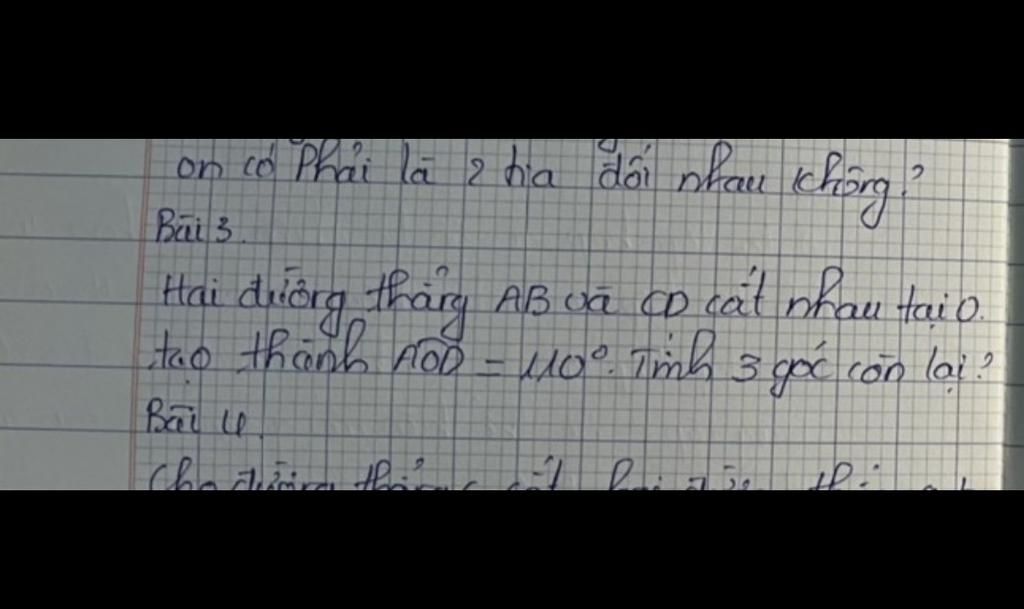 on có Phải là 2 tia đối nhau không?
Bài 3.
Hai đường thẳng AB và CD cắt nhau tại O.
tạo thành AOD = 110°. Tính 3 góc còn lại?
Bài 4
Cho đường thẳng c cắt hai đường